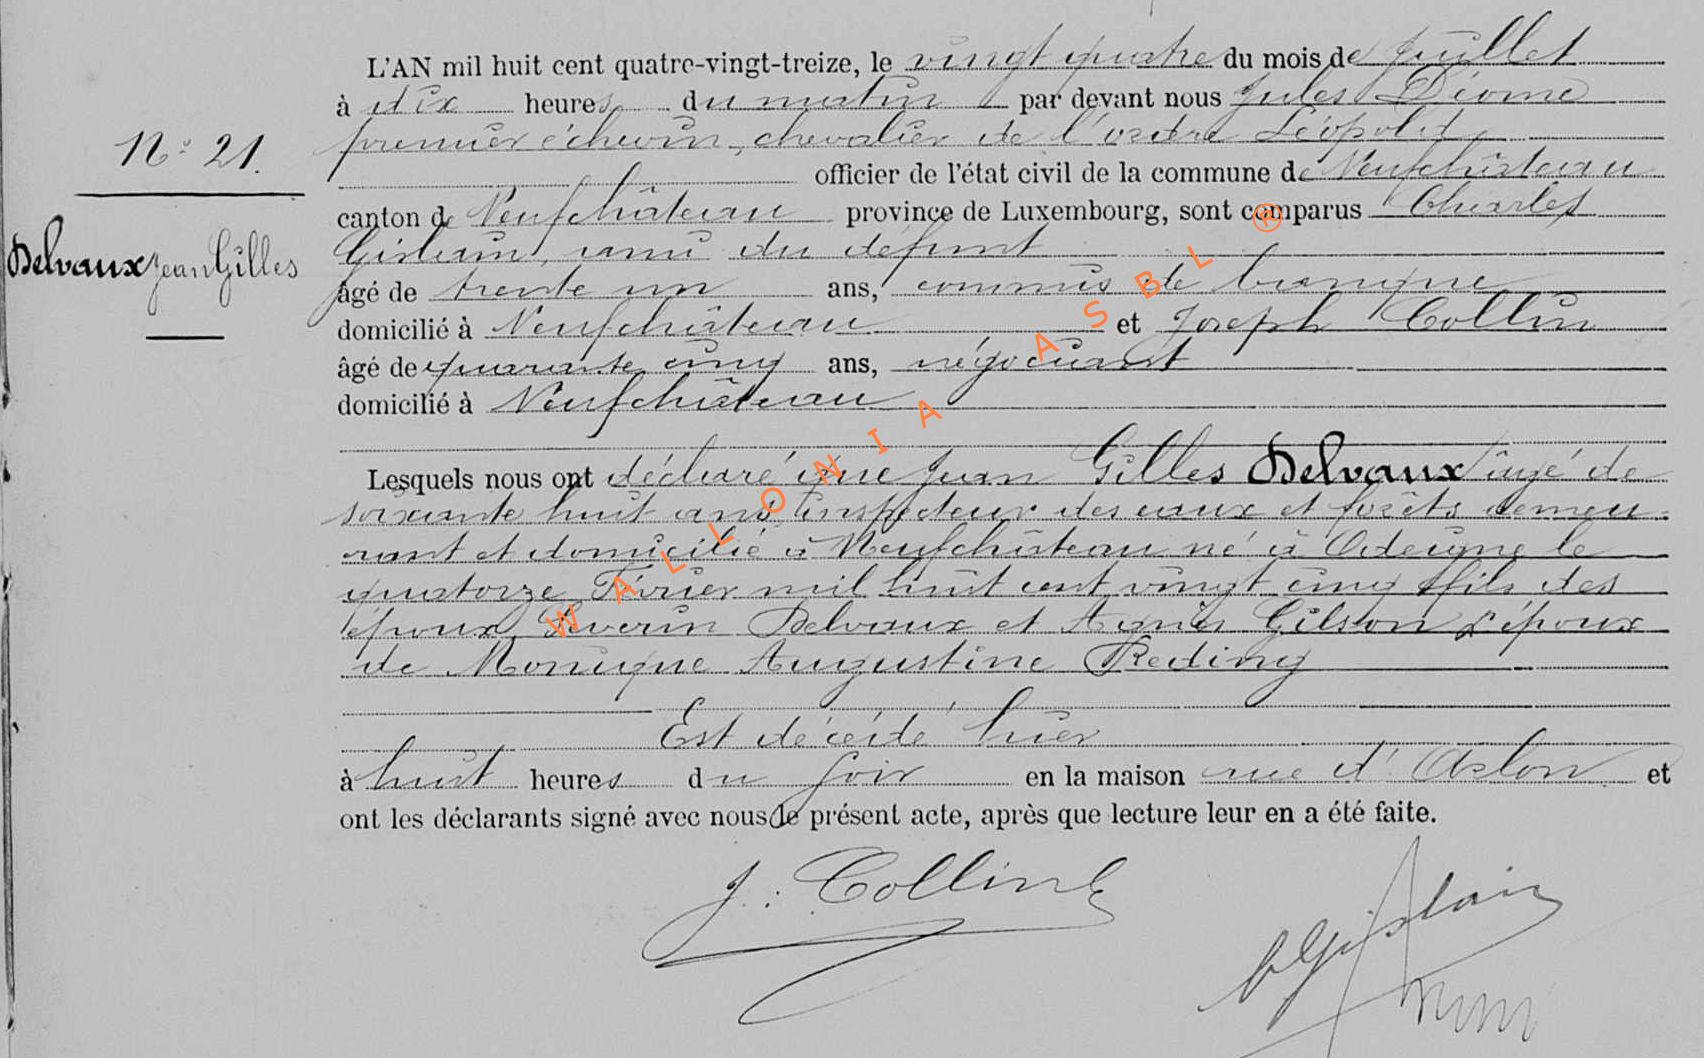 L'AN mil huit cent quatre-vingt-treize, le vingt quatre du mois de Juillet
à dix heures du matin par devant nous Jules Dione
premier échevin, chevalier de l'ordre Léopold
N° 21.
officier de l'état civil de la commune de Neufchâteau
canton de Neufchâteau province de Luxembourg, sont comparus Charles
Gislain, ami du défunt
Delvaux Jean Gilles
âgé de trente un ans, commis de banque
domicilié à Neufchâteau et Joseph Collin
âgé de quarante cinq ans, négociant
domicilié à Neufchâteau
Lesquels nous ont déclaré que Jean Gilles Delvaux âgé de
soixante huit ans, inspecteur des eaux et forêts demeu-
rant et domicilié à Neufchâteau né à Odeigne le
quatorze Février mil huit cent vingt cinq fils des
époux Séverin Delvaux et Agnès Gilson & époux
de Monique Augustine Reding
Est décédé hier
à huit heures du soir en la maison rue d'Arlon et
ont les déclarants signé avec nous le présent acte, après que lecture leur en a été faite.
J. Collin
C Gislain
WALLONIA ASBL ®